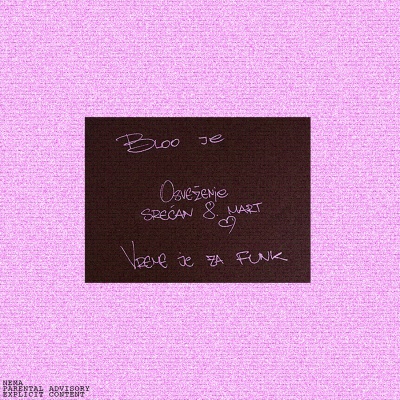 Bloo je
Osveženje
srećan 8. mart
Vreme je za funk
NEMA
PARENTAL ADVISORY
EXPLICIT CONTENT